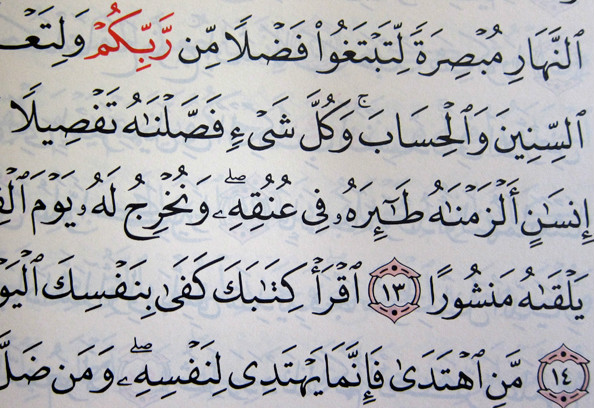 ٱلنَّهَارِ مُبْصِرَةً لِّتَبْتَغُوا۟ فَضْلًا مِّن رَّبِّكُمْ وَلِتَعْ
ٱلسِّنِينَ وَٱلْحِسَابَ ۚ وَكُلَّ شَىْءٍ فَصَّلْنَٰهُ تَفْصِيلًا
إِنسَٰنٍ أَلْزَمْنَٰهُ طَٰٓئِرَهُۥ فِى عُنُقِهِۦ ۖ وَنُخْرِجُ لَهُۥ يَوْمَ ٱلْقِ
يَلْقَىٰهُ مَنشُورًا ١٣ ٱقْرَأْ كِتَٰبَكَ كَفَىٰ بِنَفْسِكَ ٱلْيَوْ
١٤ مَّنِ ٱهْتَدَىٰ فَإِنَّمَا يَهْتَدِى لِنَفْسِهِۦ ۖ وَمَن ضَلَّ